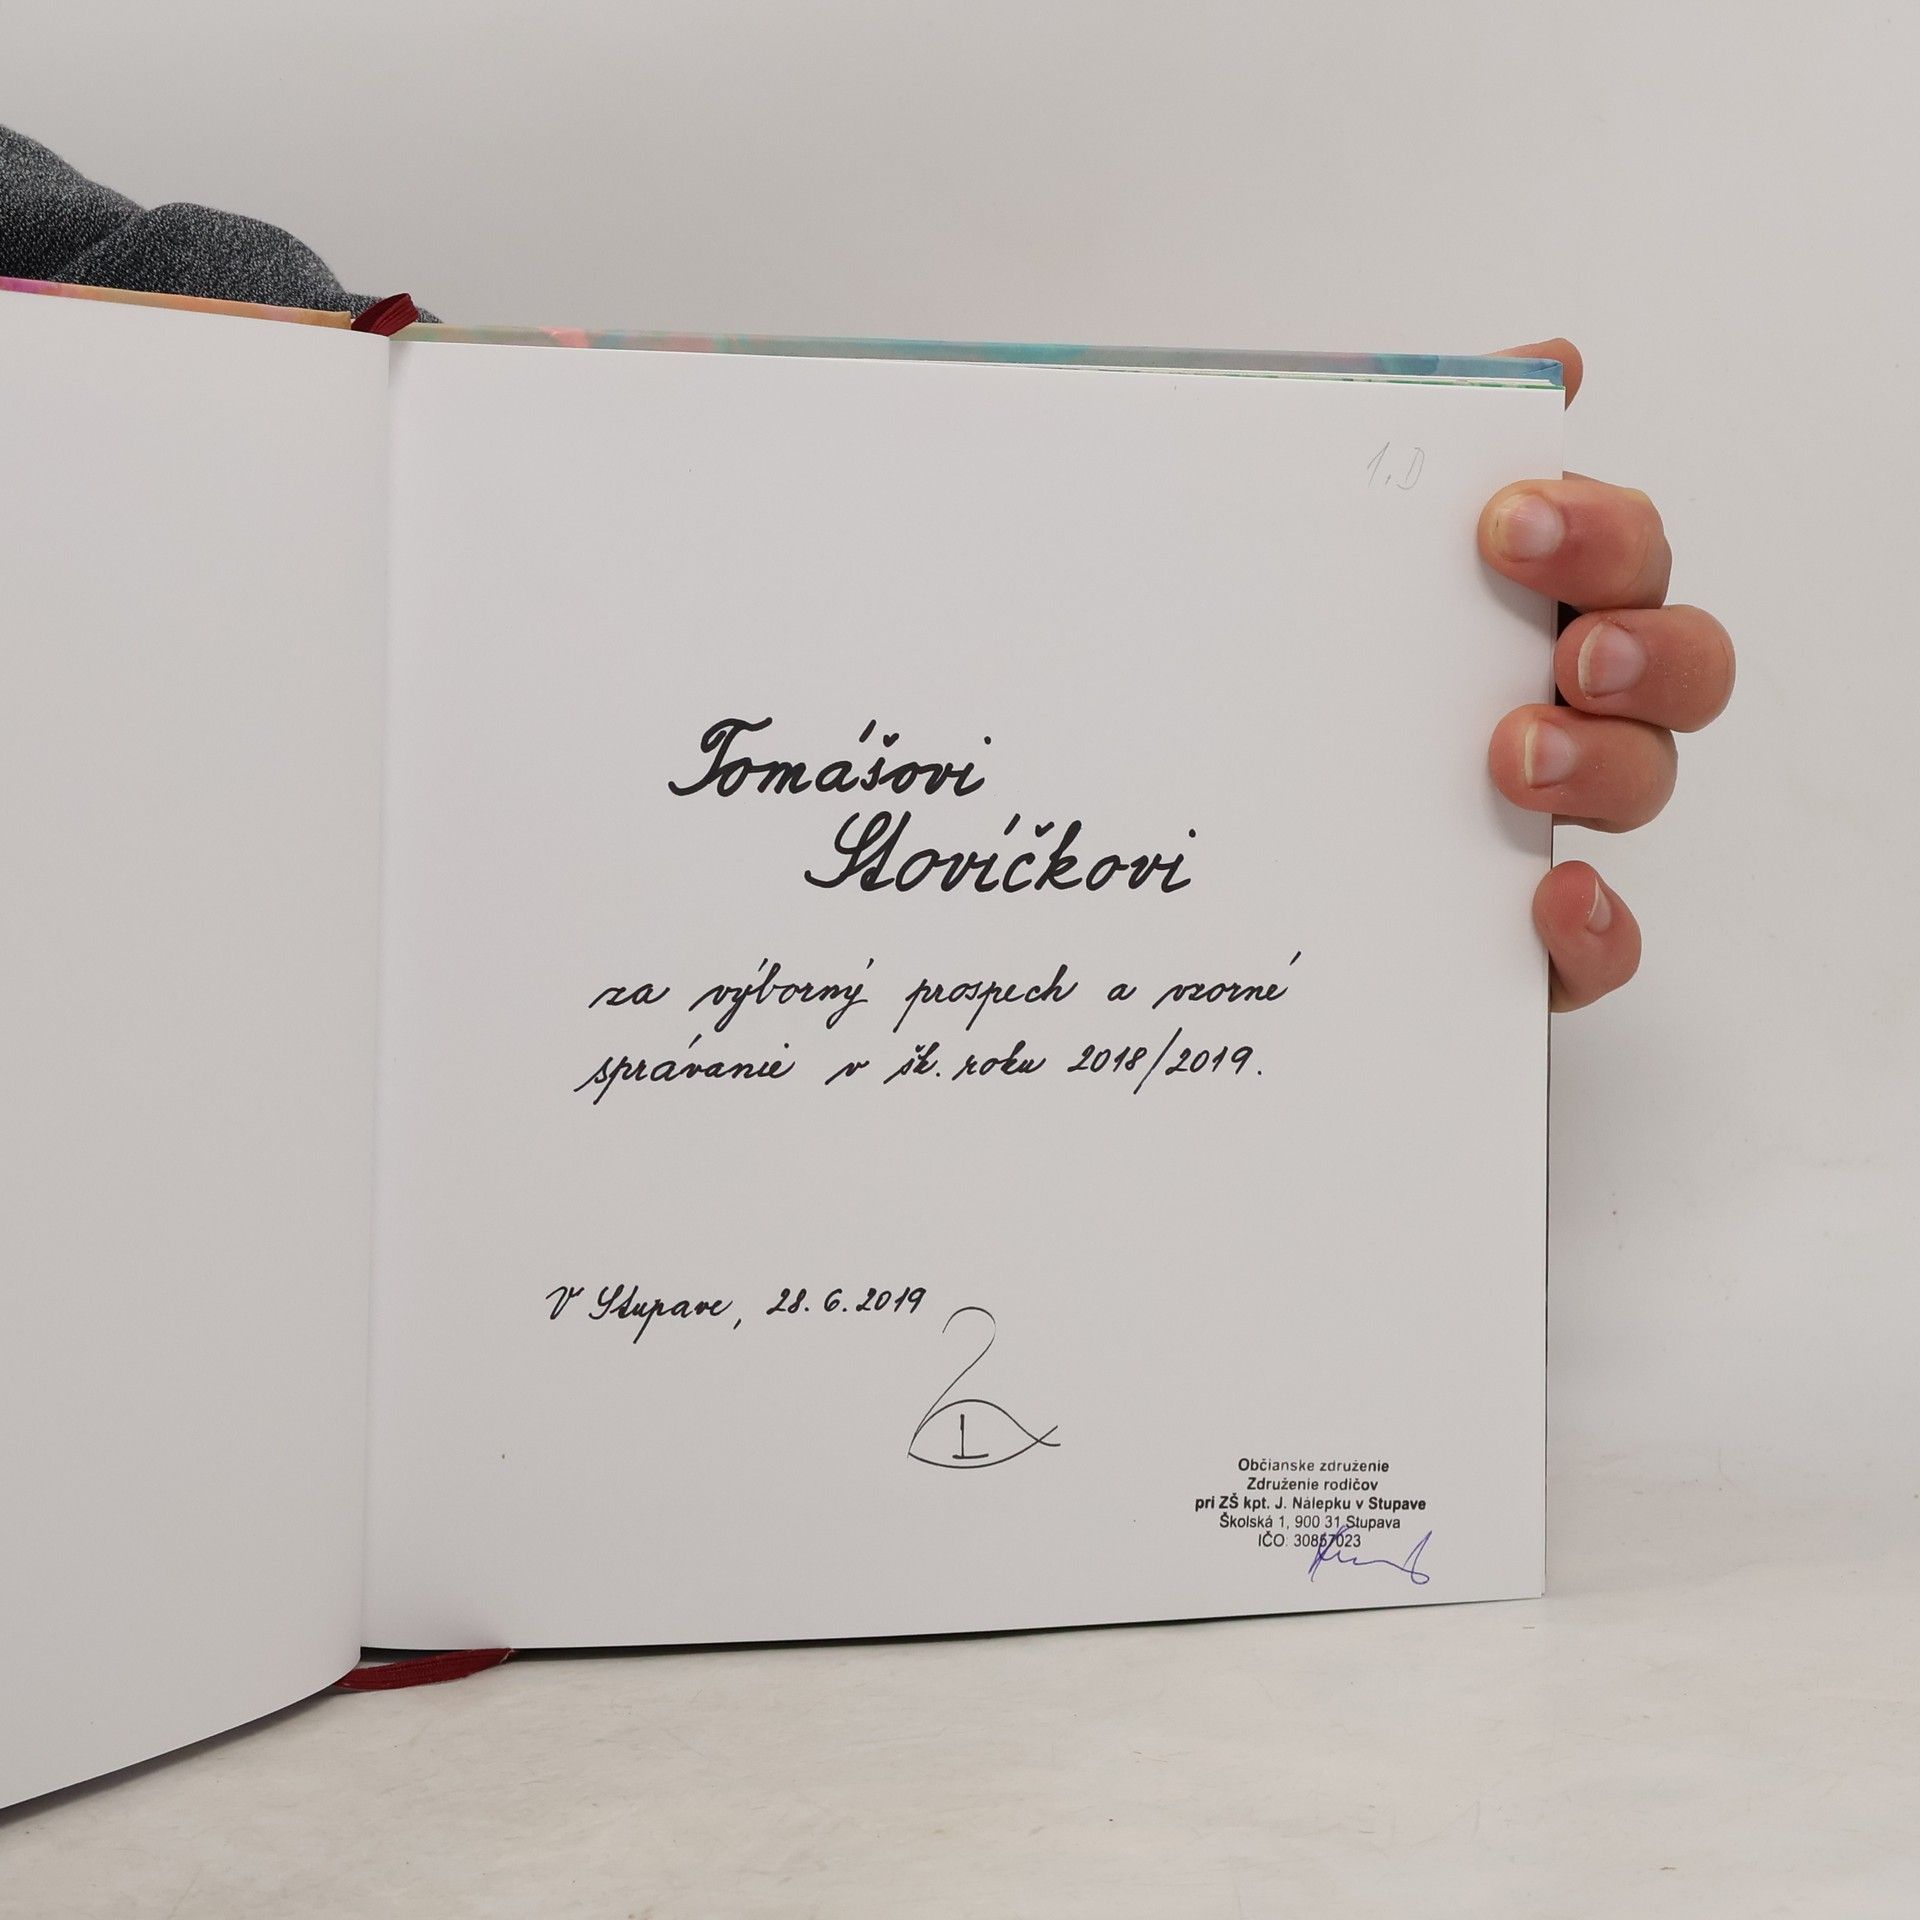 1.D
Tomášovi
Stovíčkovi
za výborný prospech a vzorné
správanie v šk. roku 2018/2019.
V Stupave, 28.6.2019
L
Občianske združenie
Združenie rodičov
pri ZŠ kpt. J. Nálepku v Stupave
Školská 1, 900 31 Stupava
IČO: 30857023